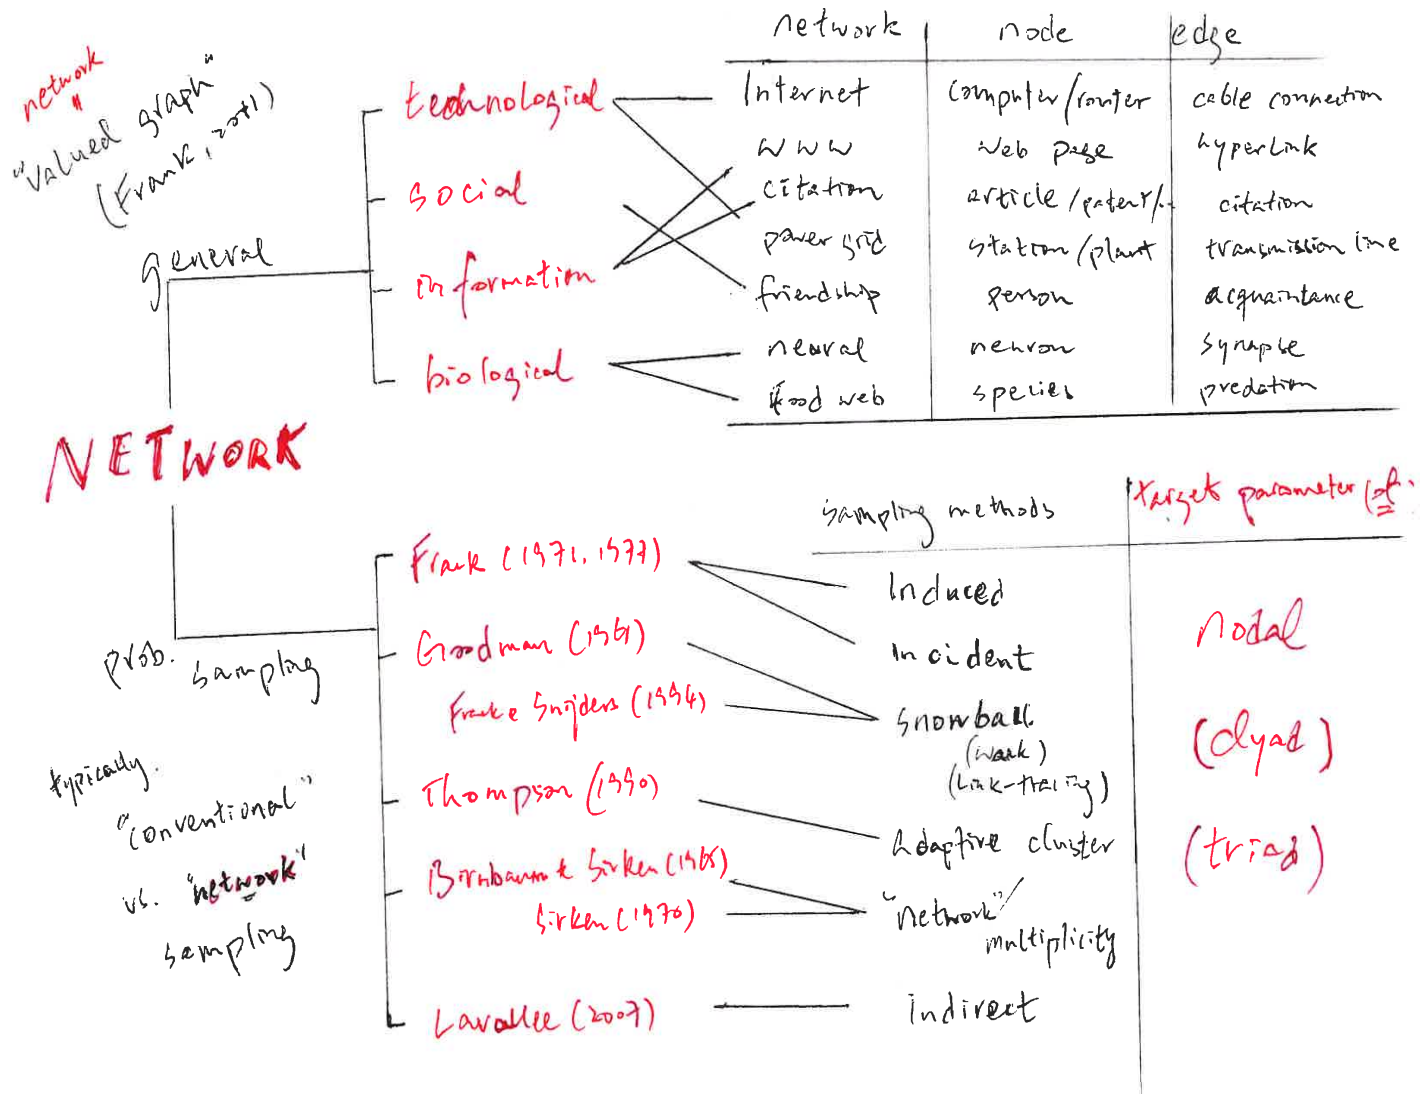 network
"
"Valued graph"
(Frank, 2011)
general
technological
social
information
biological
network node edge
Internet computer/router cable connection
WWW Web page hyperlink
citation article/patent/.. citation
power grid station/plant transmission line
friendship person acquaintance
neural neuron synapse
food web species predation
NETWORK
sampling methods target parameter (of.
prob. sampling
Frank (1971, 1977)
Goodman (1961)
Frank & Snijders (1994)
Thompson (1990)
Birnbaum & Sirken (1965)
Sirken (1970)
Lavallee (2007)
Induced
Incident
Snowball
(walk)
(link-tracing)
Adaptive cluster
"network"/
multiplicity
indirect
nodal
(dyad)
(triad)
typically.
"conventional"
vs. "network"
sampling